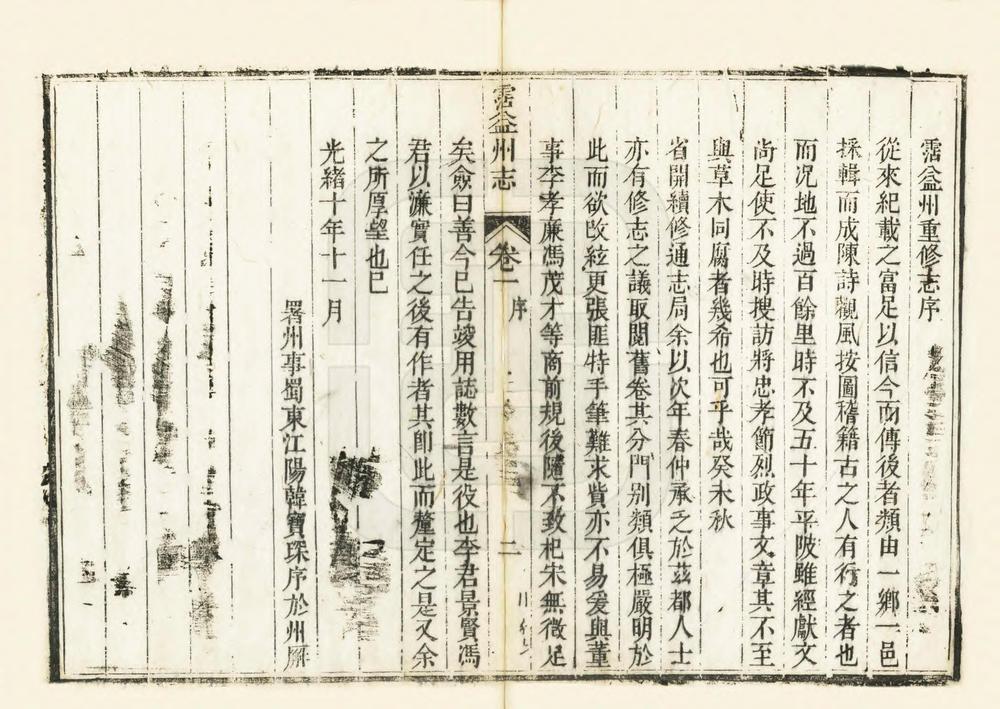 霑益州重修志序
從來紀載之富足以信今而傳後者類由一鄉一邑
採輯而成陳詩觀風按圖稽籍古之人有行之者也
而况地不過百餘里時不及五十年平陂雖經獻文
尙足使不及時搜訪將忠孝節烈政事文章其不至
與草木同腐者幾希也可乎哉癸未秋
省開續修通志局余以次年春仲承乏於茲都人士
亦有修志之議取閱舊卷其分門别類俱極嚴明於
此而欲改絃更張匪特手筆難求貲亦不易爰與董
霑益州志
卷一
序
二
事李孝廉馮茂才等商前規後隨不致杞宋無徵足
矣僉曰善今已告竣用誌數言是役也李君景賢馮
君以濂實任之後有作者其卽此而釐定之是又余
之所厚望也已
光緒十年十一月
署州事蜀東江陽韓寶琛序於州廨